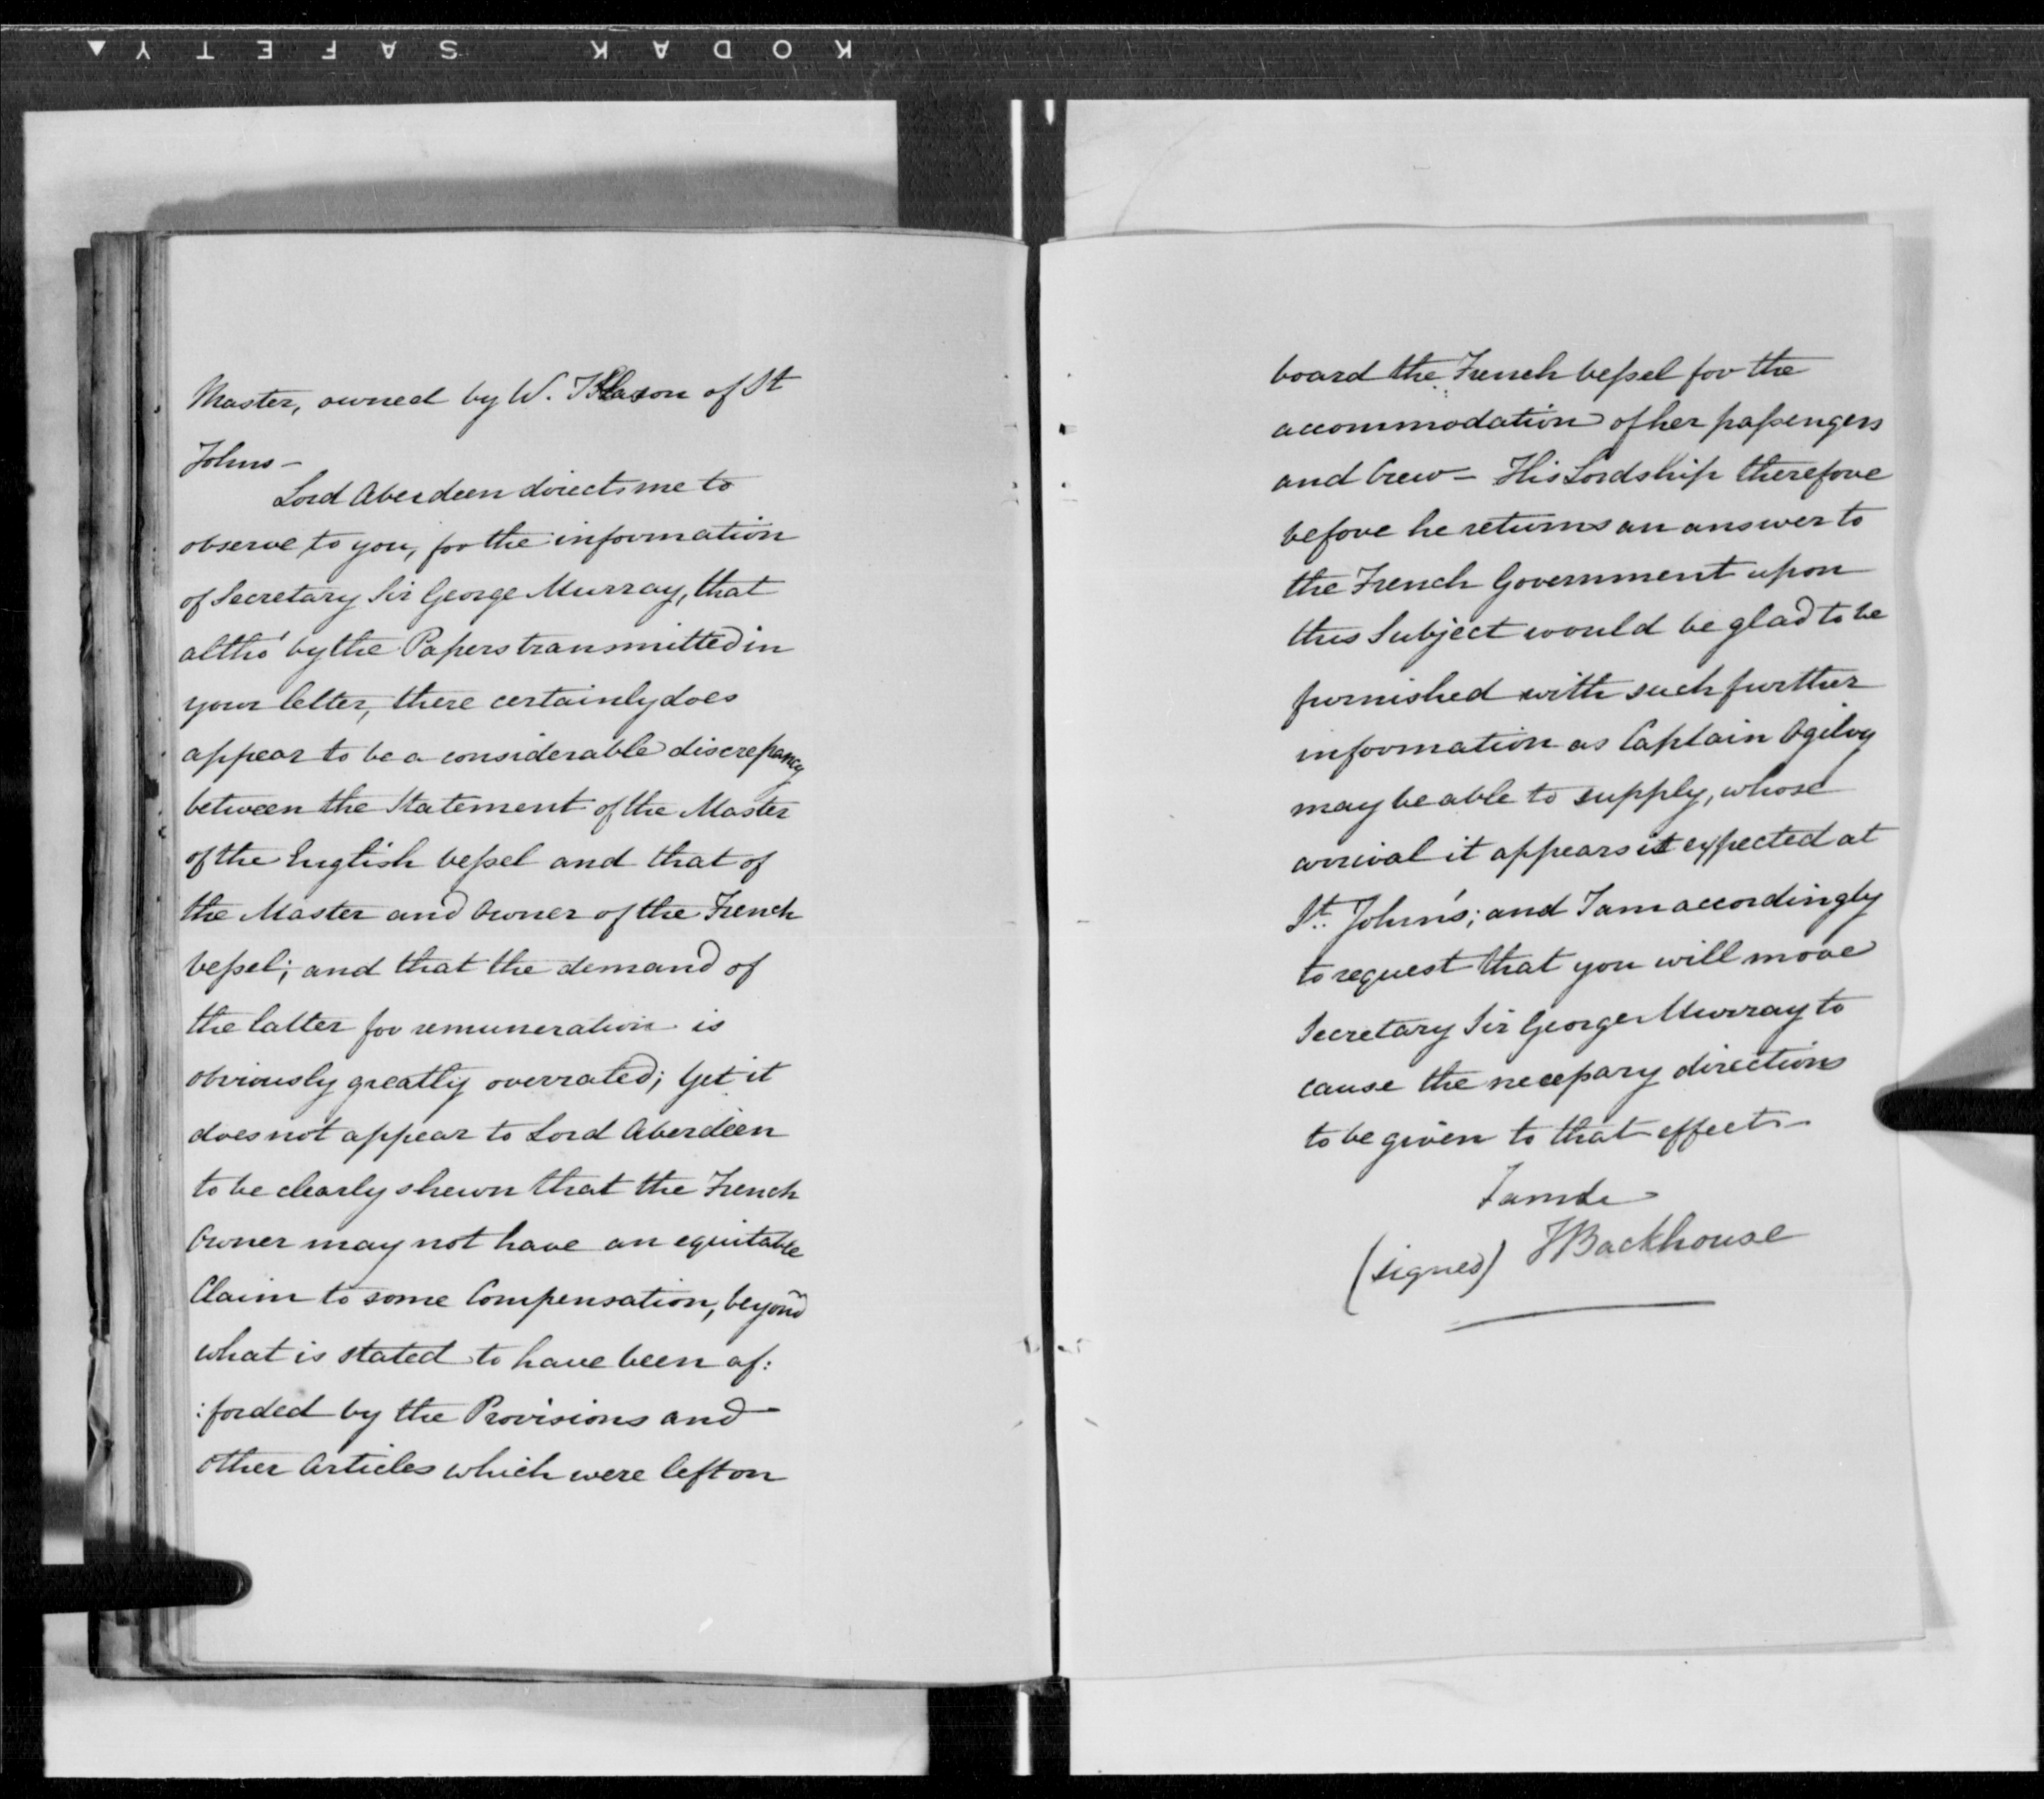 KODAK SAFETY
Master, owned by W. of St
Johns -
Lord Aberdeen directs me to
observe to you, for the information
of Secretary Sir George Murray, that
altho' by the Papers transmitted in
your letter, there certainly does
appear to be a considerable discrepancy
between the Statement of the Master
of the English vessel and that of
the Master and Owner of the French
vessel; and that the demand of
the latter for remuneration is
obviously greatly overrated; Yet it
does not appear to Lord Aberdeen
to be clearly shewn that the French
Owner may not have an equitable
Claim to some Compensation, beyond
what is stated to have been af:
:forded by the Provisions and
other Articles which were left on
board the French vessel for the
accommodation of her passengers
and Crew - His Lordship therefore
before he returns an answer to
the French Government upon
this Subject would be glad to be
furnished with such further
information as Captain Ogilvy
may be able to supply, whose
arrival it appears is expected at
St. John's; and I am accordingly
to request that you will move
Secretary Sir George Murray to
cause the necessary directions
to be given to that effect -
I am &c
(signed) J Backhouse